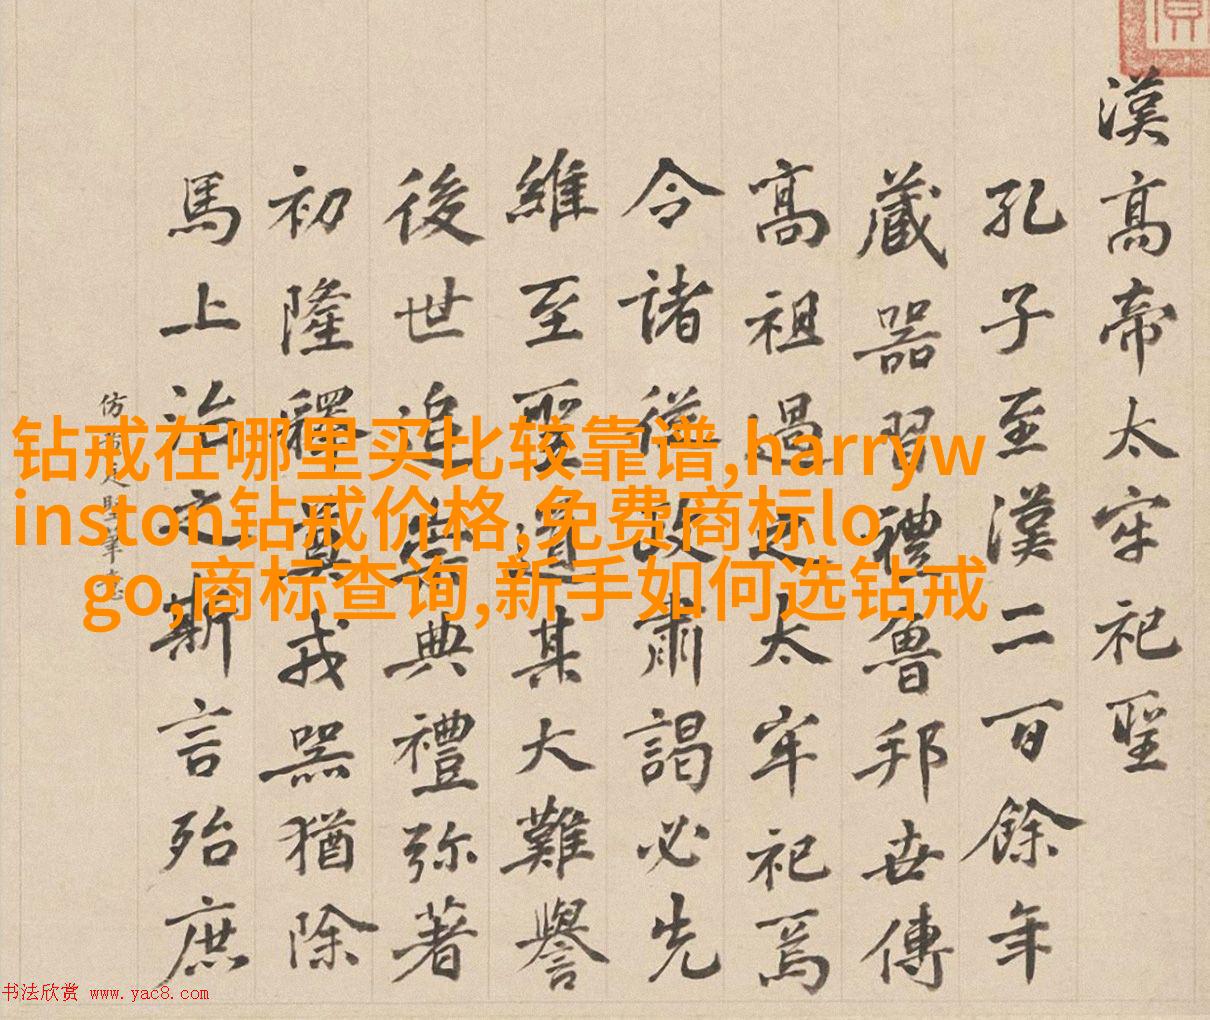 漢高帝太牢祀聖
孔子至漢二百餘年
藏器習禮魯邦世傳
高祖過之太牢祀焉
令諸從政肅謁必先
維至聖道其大難譽
後世追崇典禮弥著
初隆釋奠戎器猶除
馬上治之斯言殆庶
仿黃庭堅筆意
钻戒在哪里买比较靠谱,harryw
inston钻戒价格,免费商标lo
go,商标查询,新手如何选钻戒
书法欣赏 www.yac8.com